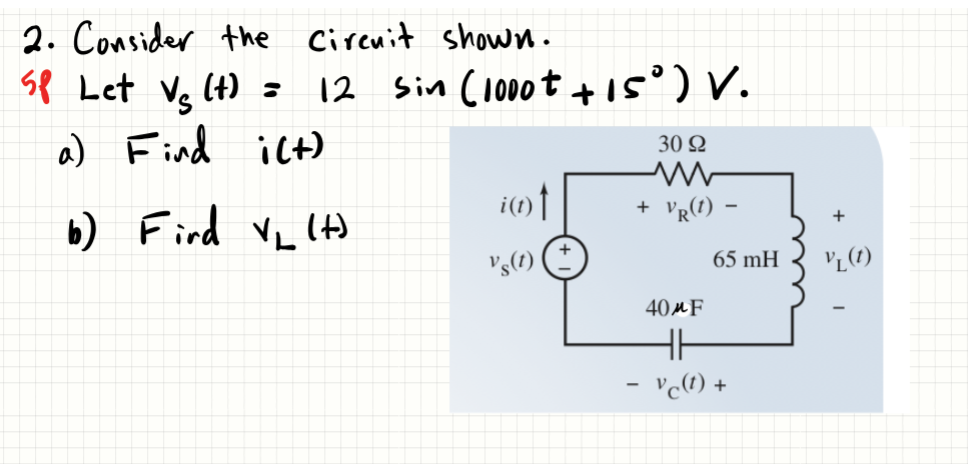 2. Consider the circuit shown.
5P Let Vs(t) = 12 sin(1000t + 15°) V.
a) Find i(t)
b) Find VL(t)
30 Ω
+ vR(t) −
i(t) ↑
vs(t)
+
−
65 mH
+
vL(t)
−
40μF
− vC(t) +